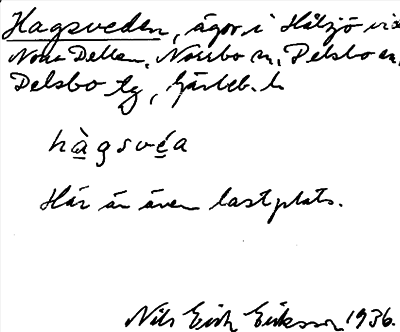 Hagsveden, ägor i Hålsjö vid
Norra Dellen, Norrbo sn, Delsbo sn,
Delsbo tg, Gävleb. l.
hàgsvéa
Här är även lastplats.
Nils Erik Eriksson 1936.